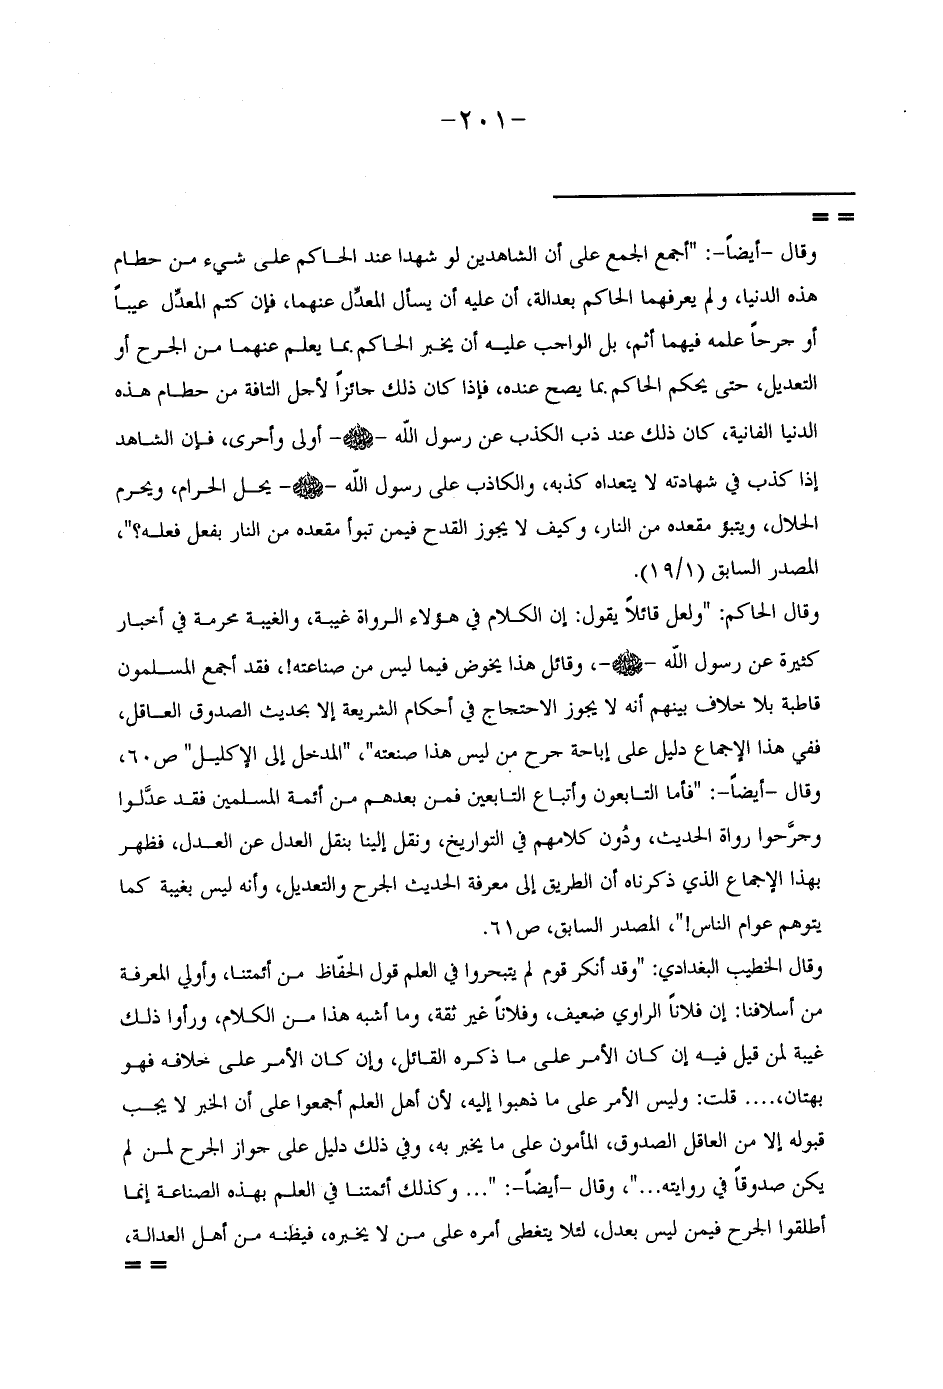 -٢٠١-
= =
وقال -أيضاً-: "أجمع الجمع على أن الشاهدين لو شهدا عند الحاكم على شيء من حطام
هذه الدنيا، ولم يعرفهما الحاكم بعدالة، أن عليه أن يسأل المعدِّل عنهما، فإن كتم المعدِّل عيباً
أو جرحاً علمه فيهما أثم، بل الواجب عليه أن يخبر الحاكم بما يعلم عنهما من الجرح أو
التعديل، حتى يحكم الحاكم بما يصح عنده، فإذا كان ذلك جائزاً لأجل التافة من حطام هذه
الدنيا الفانية، كان ذلك عند ذب الكذب عن رسول الله -ﷺ- أولى وأحرى، فإن الشاهد
إذا كذب في شهادته لا يتعداه كذبه، والكاذب على رسول الله -ﷺ- يحل الحرام، ويحرم
الحلال، ويتبؤ مقعده من النار، وكيف لا يجوز القدح فيمن تبوأ مقعده من النار بفعل فعله؟"،
المصدر السابق (١٩/١).
وقال الحاكم: "ولعل قائلاً يقول: إن الكلام في هؤلاء الرواة غيبة، والغيبة محرمة في أخبار
كثيرة عن رسول الله -ﷺ-، وقائل هذا يخوض فيما ليس من صناعته!، فقد أجمع المسلمون
قاطبة بلا خلاف بينهم أنه لا يجوز الاحتجاج في أحكام الشريعة إلا بحديث الصدوق العاقل،
ففي هذا الإجماع دليل على إباحة جرح من ليس هذا صنعته"، "المدخل إلى الإكليل" ص٦٠،
وقال -أيضاً-: "فأما التابعون وأتباع التابعين فمن بعدهم من أئمة المسلمين فقد عدَّلوا
وجرَّحوا رواة الحديث، ودُون كلامهم في التواريخ، ونقل إلينا بنقل العدل عن العدل، فظهر
بهذا الإجماع الذي ذكرناه أن الطريق إلى معرفة الحديث الجرح والتعديل، وأنه ليس بغيبة كما
يتوهم عوام الناس!"، المصدر السابق، ص٦١.
وقال الخطيب البغدادي: "وقد أنكر قوم لم يتبحروا في العلم قول الحفّاظ من أئمتنا، وأولي المعرفة
من أسلافنا: إن فلاناً الراوي ضعيف، وفلاناً غير ثقة، وما أشبه هذا من الكلام، ورأوا ذلك
غيبة لمن قيل فيه إن كان الأمر على ما ذكره القائل، وإن كان الأمر على خلافه فهو
بهتان،.... قلت: وليس الأمر على ما ذهبوا إليه، لأن أهل العلم أجمعوا على أن الخبر لا يجب
قبوله إلا من العاقل الصدوق، المأمون على ما يخبر به، وفي ذلك دليل على جواز الجرح لمن لم
يكن صدوقاً في روايته..."، وقال -أيضاً-: "... وكذلك أئمتنا في العلم بهذه الصناعة إنما
أطلقوا الجرح فيمن ليس بعدل، لئلا يتغطى أمره على من لا يخبره، فيظنه من أهل العدالة،
= =